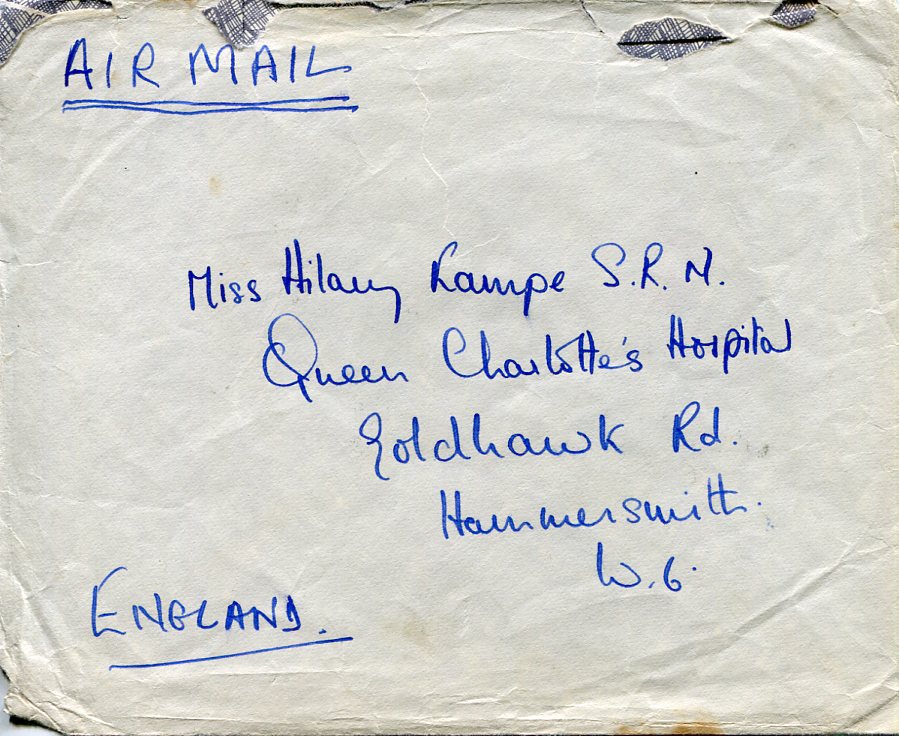 AIR MAIL
Miss Hilary Kampe S.R.N.
Queen Charlotte's Hospital
Goldhawk Rd.
Hammersmith.
W.6.
ENGLAND.